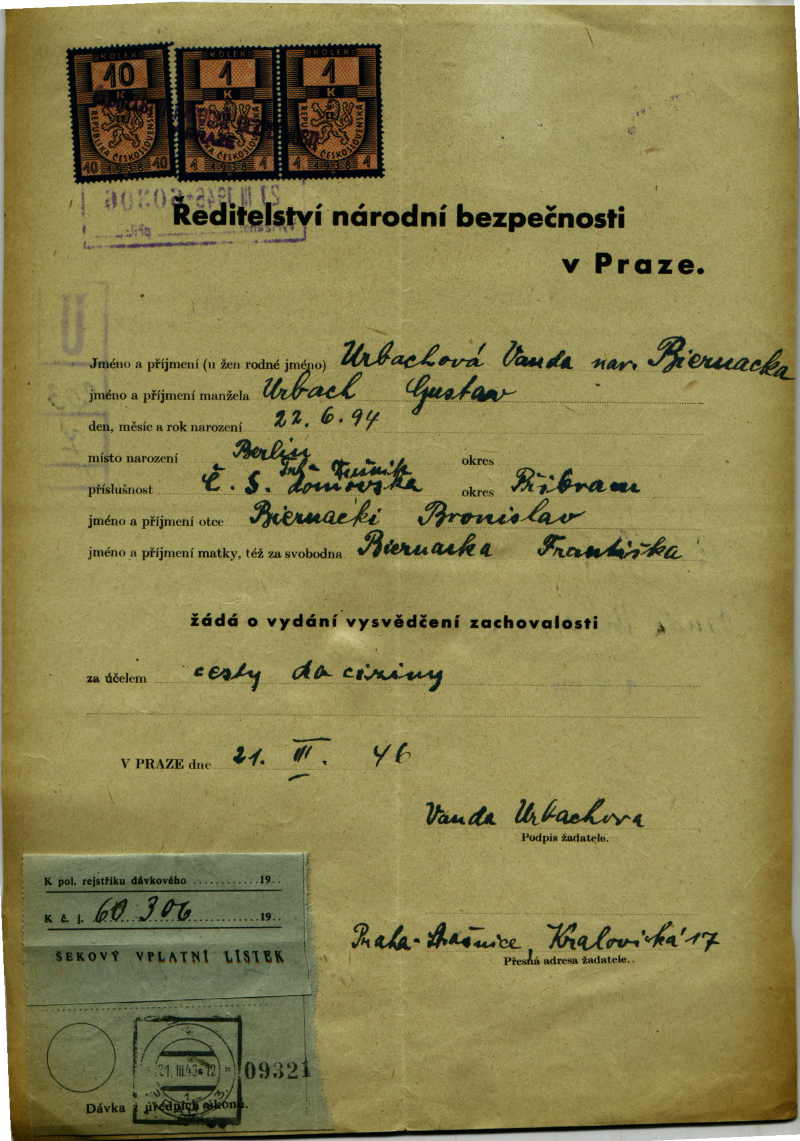 KOLEK KOLEK KOLEK
10 1 1
K K K
REPUBLIKA ČESKOSLOVENSKÁ REPUBLIKA ČESKOSLOVENSKÁ REPUBLIKA ČESKOSLOVENSKÁ
10 1938 10 1 1938 1 1 1938 1
27 III 1946 - 60306
Ředitelství národní bezpečnosti
v Praze.
U
Jméno a příjmení (u žen rodné jméno) Urbachová Vanda nar. Biernacka
jméno a příjmení manžela Urbach Gustav
den, měsíc a rok narození 22. 6. 94
místo narození Berlin okres
příslušnost Č. S. domovska okres Příbram
jméno a příjmení otce Biernacki Bronislav
jméno a příjmení matky, též za svobodna Biernacka Františka
žádá o vydání vysvědčení zachovalosti
za účelem cesty do ciziny
V PRAZE dne 21. III. 46
Vanda Urbachova
Podpis žadatele.
K pol. rejstříku dávkového 19
K č. j. 60306 19
ŠEKOVÝ VPLATNÍ LÍSTEK
Praha-Strašnice, Kralovická 17
Přesná adresa žadatele.
09321
Dávka z úředních úkonů.